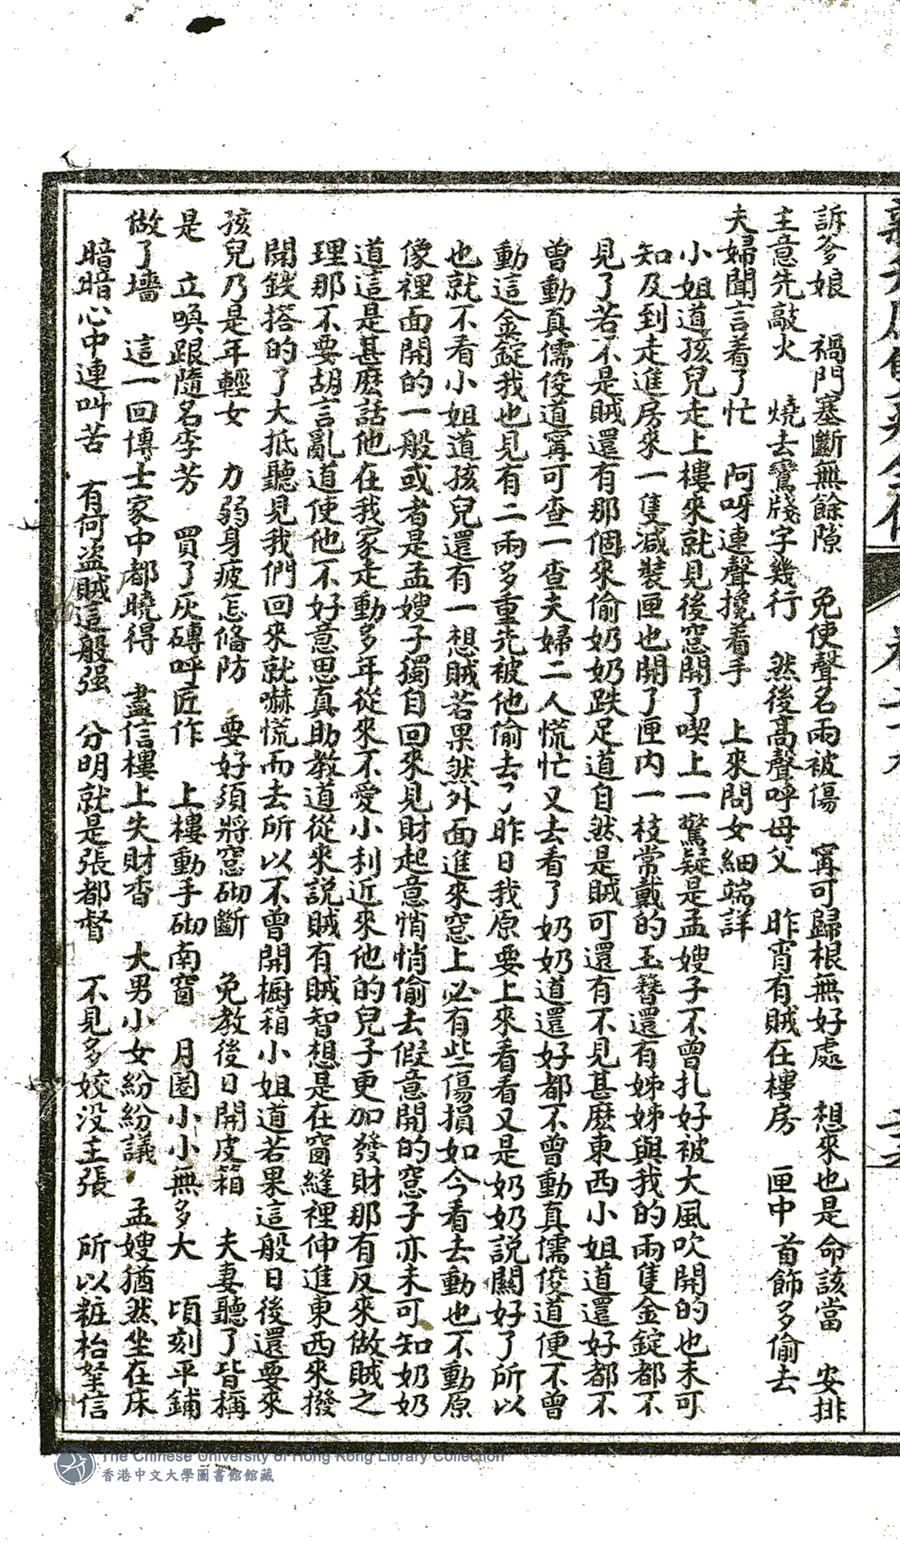 訴爹娘　禍門塞斷無餘隙　免使聲名兩被傷　寗可歸根無好處　想來也是命該當　安排
主意先敲火　燒去鸞牋字幾行　然後高聲呼母父　昨宵有賊在樓房　匣中首飾多偷去
夫婦聞言着了忙　阿呀連聲攙着手　上來問女細端詳
小姐道孩兒走上樓來就見後窓開了喫上一驚疑是孟嫂子不曾扎好被大風吹開的也未可
知及到走進房來一隻减裝匣也開了匣内一枝常戴的玉簪還有姊姊與我的兩隻金錠都不
見了若不是賊還有那個來偷奶奶跌足道自然是賊可還有不見甚麽東西小姐道還好都不
曾動真儒俊道寗可查一查夫婦二人慌忙又去看了奶奶道還好都不曾動真儒俊道便不曾
動這金錠我也見有二兩多重先被他偷去了昨日我原要上來看看又是奶奶說關好了所以
也就不看小姐道孩兒還有一想賊若果然外面進來窓上必有些傷損如今看去動也不動原
像裡面開的一般或者是孟嫂子獨自回來見財起意悄悄偷去假意開的窓子亦未可知奶奶
道這是甚麽話他在我家走動多年從來不愛小利近來他的兒子更加發財那有反來做賊之
理那不要胡言亂道使他不好意思真助教道從來説賊有賊智想是在窗縫裡伸進東西來撥
開鈛搭的了大抵聽見我們回來就嚇慌而去所以不曾開橱箱小姐道若果這般日後還要來
孩兒乃是年輕女　力弱身疲怎偹防　要好須將窓砌斷　免教後日開皮箱　夫妻聽了皆稱
是　立喚跟隨名李芳　買了灰磚呼匠作　上樓動手砌南窗　月圏小小無多大　頃刻平鋪
做了墻　這一回博士家中都曉得　盡信樓上失財杳　大男小女紛紛議　孟嫂猶然坐在床
暗暗心中連叫苦　有何盗賊這般强　分明就是張都督　不見多姣没主張　所以粧枱拏信
The Chinese University of Hong Kong Library Collection
香港中文大學圖書館館藏